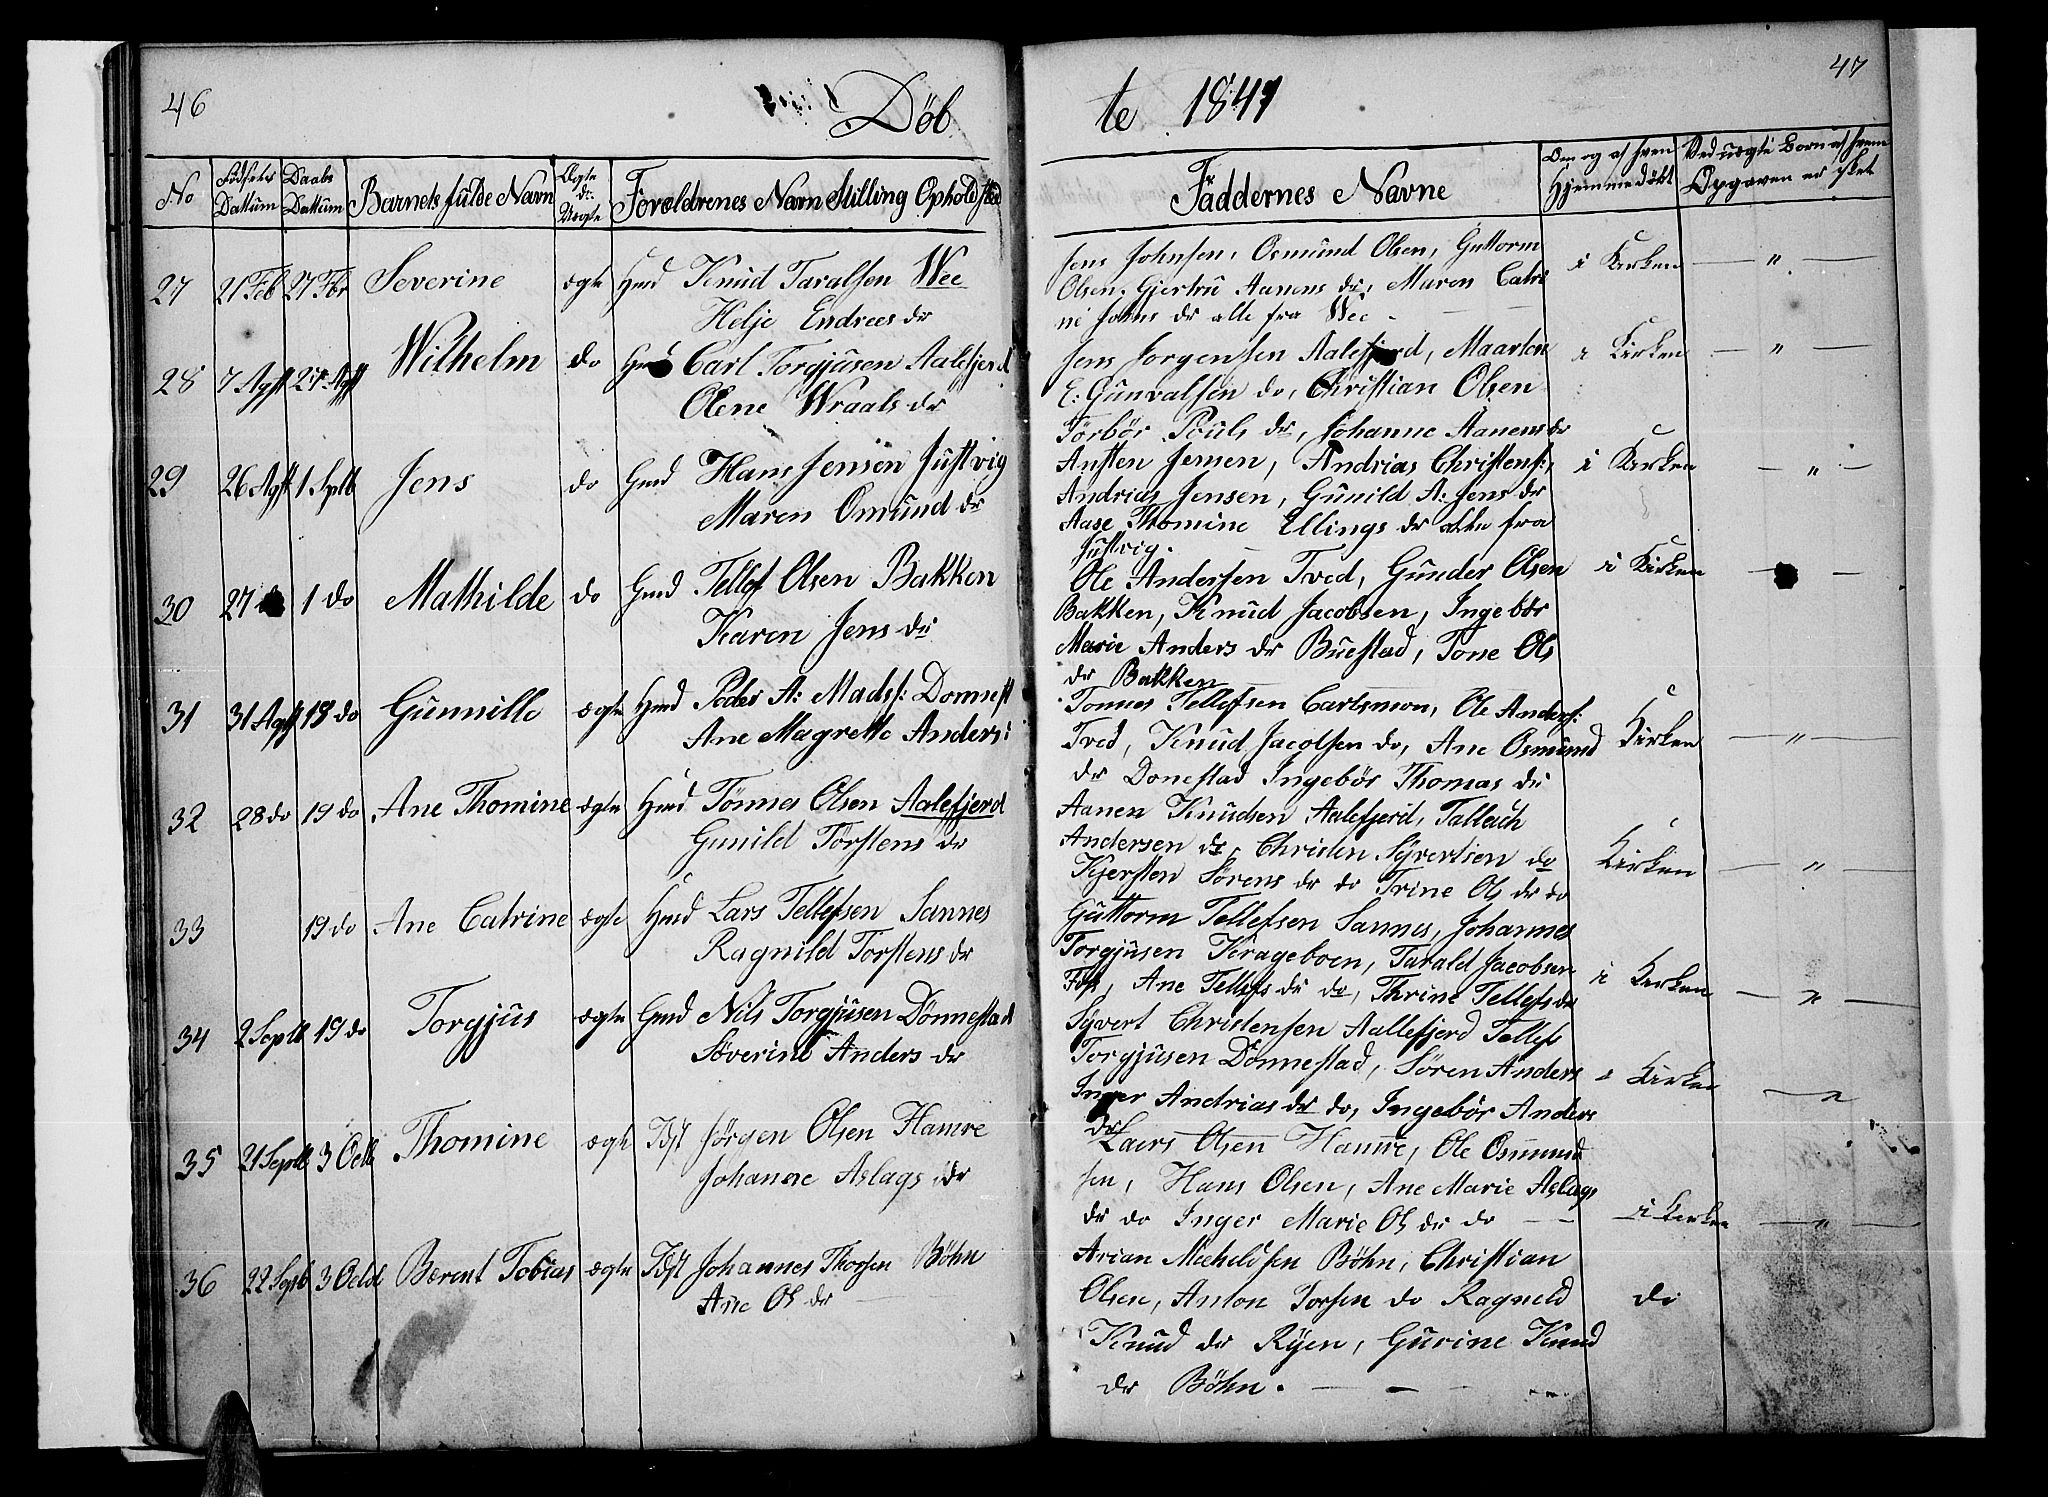 46
Döb
No
Födsels Dattum
Daabs Dattum
Barnets fulde Navn
Ægte dr: Uægte
Forældrenes Navn Stilling Opholdsted
27 21 Feb 27 Fbr Severine ægte Gmd Knud Taralsen Wee
Helje Endres dr
28 7 Agst 27 Agst Wilhelm do Gmd Carl Torgjusen Aalefjerd
Olene Wraals dr
29 26 Agst 1 Septb Jens do Gmd Hans Jensen Justvig
Maren Omund dr
30 27 do 1 do Mathilde do Gmd Tellef Olsen Bakken
Karen Jens dr
31 31 Agst 18 do Gunnille ægte Hmd Peder A: Mads: Donnest
Ane Magrette Anders:
32 28 do 19 do Ane Thomine ægte Hmd Tönnes Olsen Aalefjerd
Gunild Törstens dr
33 19 do Ane Catrine ægte Hmd Lars Tellefsen Sannes
Ragnild Torstens dr
34 2 Septb 19 do Torgjus ægte Gmd Nils Torgjusen Dönnestad
Söverine Anders dr
35 21 Septb 3 Octb Thomine ægte Idst Jörgen Olsen Hamre
Johanne Aslags dr
36 22 Septb 3 Octb Berent Tobias ægte Idst Johannes Thorsen Böhn
Ane Ols dr
47
te 1841
Faddernes Navne
Om og af hvem Hjemmedöbt
Ved uægte Born af hvem Opgaven er sket
Jens Johnsen, Osmund Olsen, Guttorm i Kirken "
Olsen, Gjertru Aanens dr, Maren Catri
ne Johns dr alle fra Wee
Jens Jorgensen Aalefjerd, Maarten i Kirken "
E: Gunvalsen do, Christian Olsen
Törbör Pouls dr, Johanne Aanens dr
Austen Jensen, Andrias Christens:, i Kirken "
Andrias Jensen, Gunild A: Jens dr
Aase Thomine Ellings dr alle fra
Justvig.
Ole Andersen Tved, Gunder Olsen i Kirken
Bakken, Knud Jacobsen, Ingebör
Marie Anders dr Buestad, Tone Ols
dr Bakken
Tonnes Tellefsen Carlsmon, Ole Anders:
Tved, Knud Jacobsen do, Ane Osmund Kirken "
dr Donestad Ingebör Thomas dr
Aanen Knudsen Aalefjerd, Tallach
Andersen do, Christen Syvertsen do Kirken "
Kjersten Sörens dr do Trine Ols dr do
Guttorm Tellefsen Sannes, Johannes
Torgjusen Krageboen, Tarald Jacobsen
Foss, Ane Tellefs dr do, Thrine Tellefs dr i Kirken "
Syvert Christensen Aallefjerd Tellef
Torgjusen Dönnestad, Sören Anders i Kirken "
Inger Andrias dr do, Ingebör Anders
dr
Laers Olsen Hamre, Ole Osmund
sen, Hans Olsen, Ane Marie Aslags
dr do Inger Marie Ols dr do i Kirken "
Arian Micheldsen Böhn, Christian
Olsen, Anton Torsen do Ragneld do
Knud dr Ryen, Gurine Knud
dr Böhn.